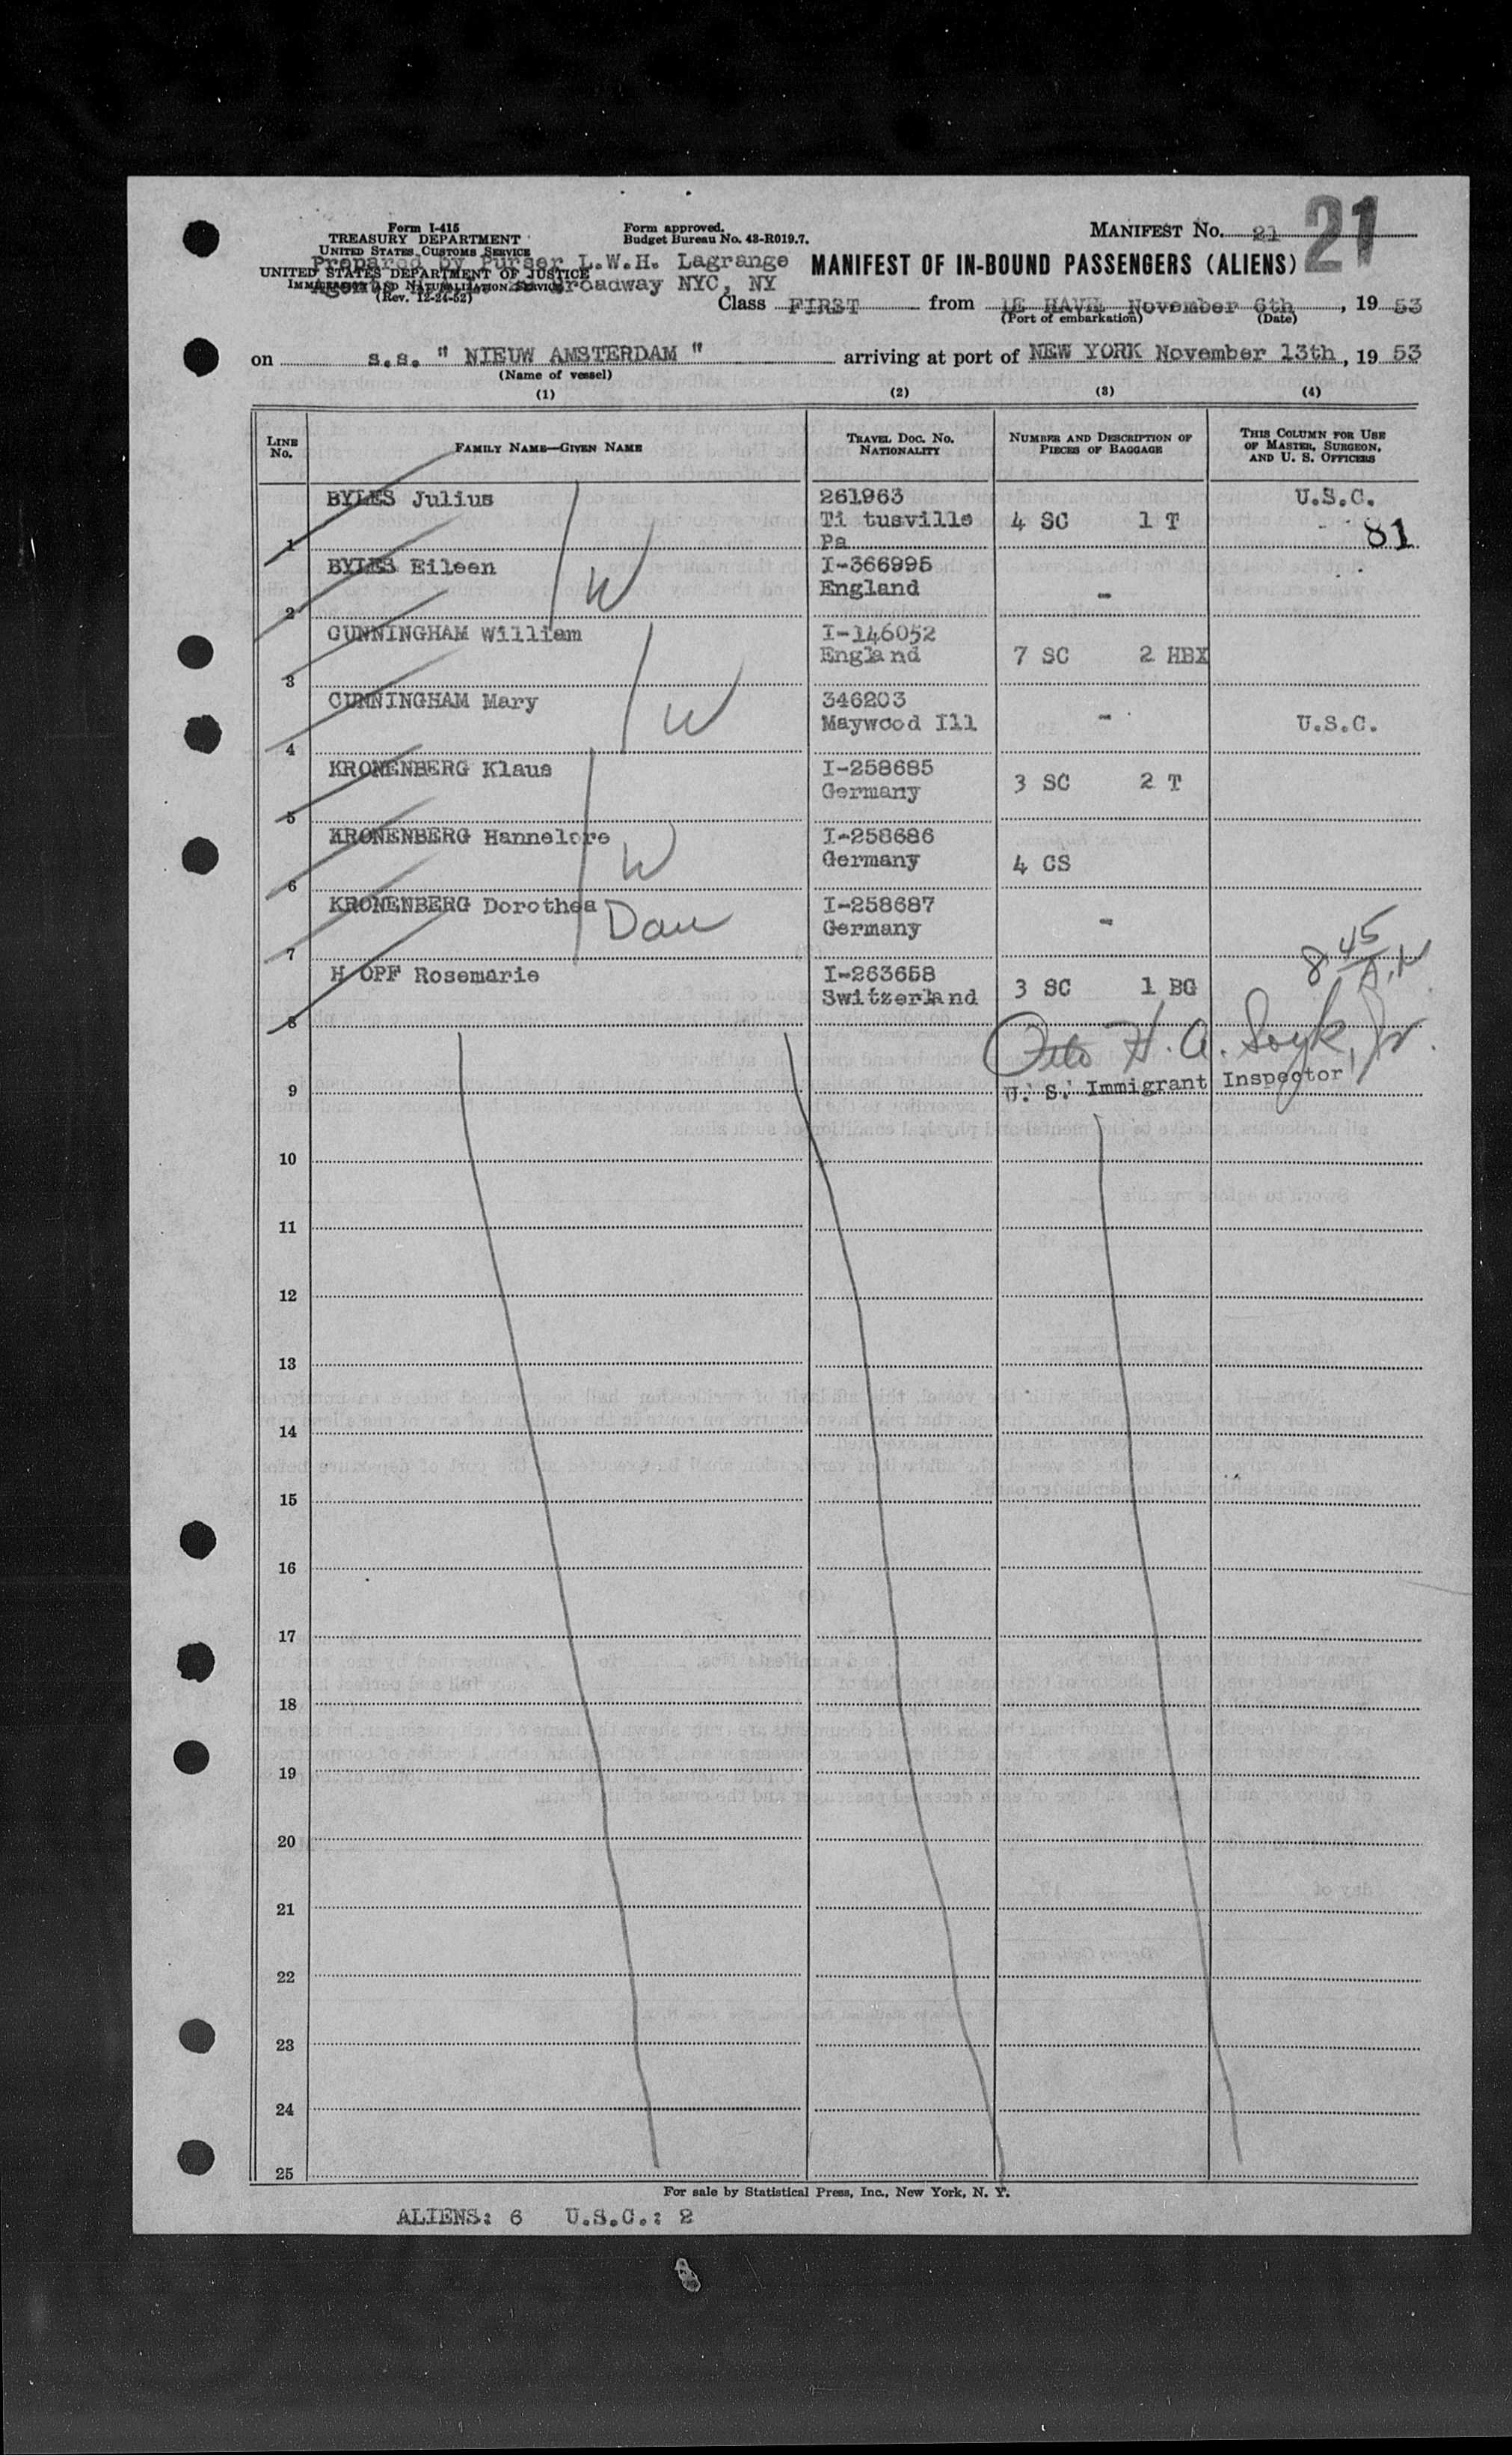 Form I-415
TREASURY DEPARTMENT
UNITED STATES CUSTOMS SERVICE
UNITED STATES DEPARTMENT OF JUSTICE
IMMIGRATION AND NATURALIZATION SERVICE
(Rev. 12-24-52)
Form approved.
Budget Bureau No. 43-R019.7.
Prepared by Purser L.W.H. Lagrange
Broadway NYC, NY
MANIFEST NO. 21
21
MANIFEST OF IN-BOUND PASSENGERS (ALIENS)
Class FIRST from LE HAVE November 6th, 19 53
(Port of embarkation) (Date)
on s.s. " NIEUW AMSTERDAM " arriving at port of NEW YORK November 13th, 19 53
(Name of vessel)
(1) (2) (3) (4)
LINE No. FAMILY NAME—GIVEN NAME TRAVEL DOC. NO. NATIONALITY NUMBER AND DESCRIPTION OF PIECES OF BAGGAGE THIS COLUMN FOR USE OF MASTER, SURGEON, AND U. S. OFFICERS
1 BYLES Julius 261963 Ti tusville Pa 4 SC 1 T U.S.C. 81
2 BYLES Eileen W I-366995 England -
3 CUNNINGHAM William I-146052 England 7 SC 2 HBX
4 CUNNINGHAM Mary W 346203 Maywood Ill - U.S.C.
5 KRONENBERG Klaus I-258685 Germany 3 SC 2 T
6 KRONENBERG Hannelore W I-258686 Germany 4 CS
7 KRONENBERG Dorothea Dau I-258687 Germany -
8 45
8 H OPF Rosemarie I-263658 Switzerland 3 SC 1 BG
H. A. Soyk, Jr.
9 U. S. Immigrant Inspector
10
11
12
13
14
15
16
17
18
19
20
21
22
23
24
25
For sale by Statistical Press, Inc., New York, N. Y.
ALIENS: 6 U.S.C.: 2